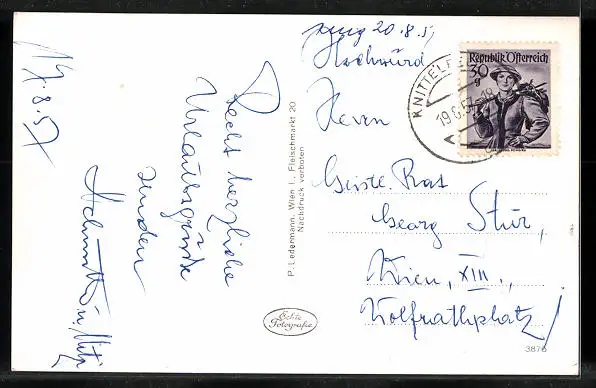 19.8.57
Recht herzliche
Urlaubsgrüße
senden
u. Mitzi
P. Ledermann, Wien I., Fleischmarkt 20
Nachdruck verboten
Echte
Fotografie
20.8.57
Hochwürd.
Herrn
Geistl. Rat
Georg Stur,
Wien, XIII.,
Wolfrathplatz
Republik Österreich
30
g
KNITTELF
19.8.57-18
387